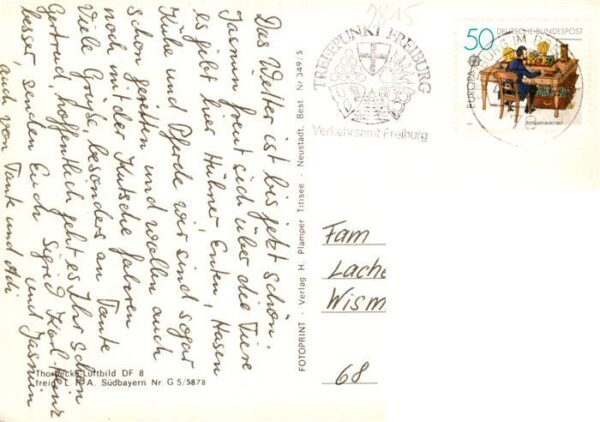 Das Wetter ist bis jetzt schön.
Jasmin freut sich über die Tiere
es gibt hier Hühner, Enten, Hasen
Kühe und Pferde wir sind sogar
schon geritten und wollen auch
noch mit der Kutsche fahren
Viele Grüße besonders an Tante
Gertrud, hoffentlich geht es Ihr schon
besser, senden Euch Sigrid Karl-Heinz
und Jasmin
auch von Tante und Adi
Thorbecke Luftbild DF 8
freig. L. P. A. Südbayern Nr G 5/5878
FOTOPRINT · Verlag H. Plamper Titisee · Neustadt. Best Nr 349,5
2815
TREFFPUNKT FREIBURG
Verkehrsamt Freiburg
50
DEUTSCHE BUNDESPOST
EUROPA
Fam
Lache
Wism
68